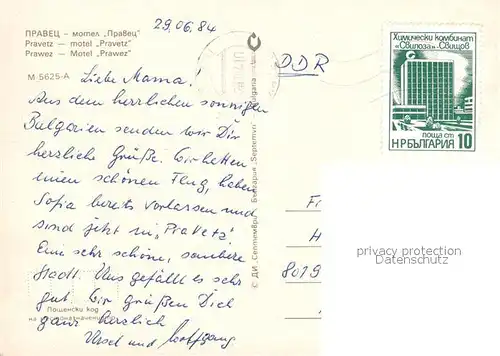 29.06.84
ПРАВЕЦ – мотел „Правец“
Pravetz – motel „Pravetz“
Prawez – Motel „Prawez“
М-5625-А
Liebe Mama!
Aus dem herrlichen sonnigen
Bulgarien senden wir Dir
herzliche Grüße. Wir hatten
einen schönen Flug, haben
Sofia bereits verlassen und
sind jetzt in „Pravetz“
Eine sehr schöne, saubere
Stadt. Uns gefällt es sehr
gut. Wir grüßen Dich
ganz herzlich
Ursel und Wolfgang
Пощенски код
на
© ДИ „Септември“ България
Bulgaria
DDR
Химически комбинат
„Свилоза“-Свищов
поща ст
НР БЪЛГАРИЯ 10
F
H
8019
privacy protection
Datenschutz